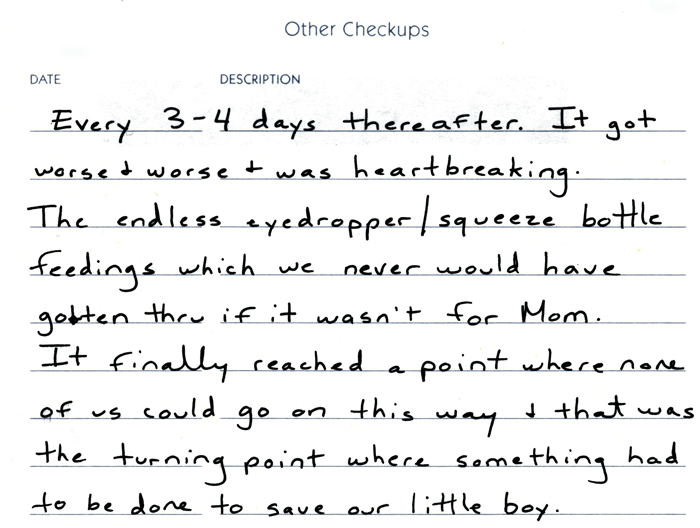 Other Checkups
DATE DESCRIPTION
Every 3-4 days thereafter. It got
worse & worse & was heartbreaking.
The endless eyedropper/squeeze bottle
feedings which we never would have
gotten thru if it wasn't for Mom.
It finally reached a point where none
of us could go on this way & that was
the turning point where something had
to be done to save our little boy.